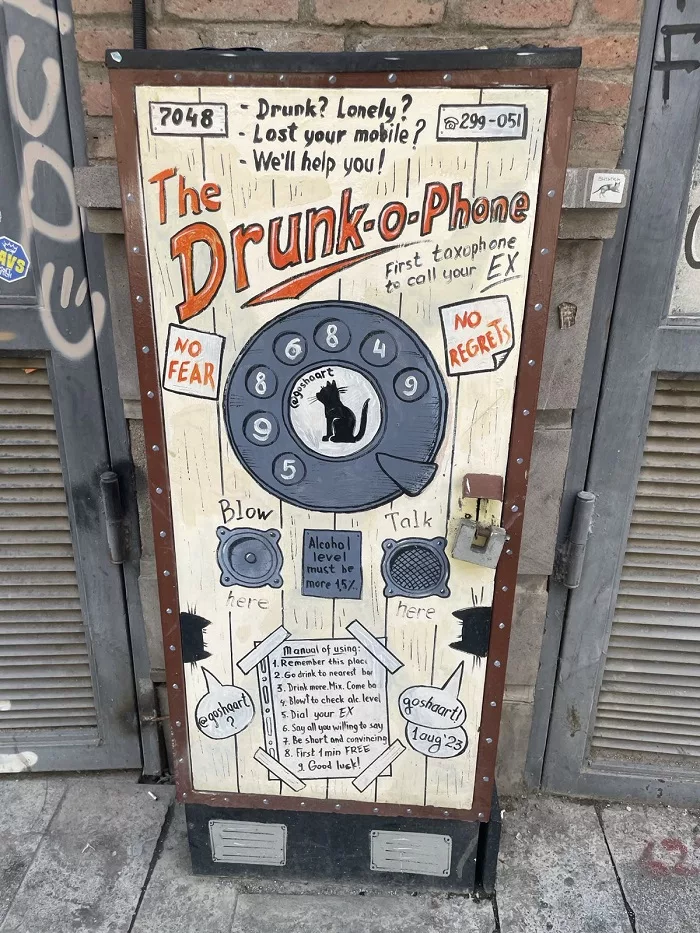 7048
- Drunk? Lonely?
- Lost your mobile?
- We'll help you!
☎299-051
The
Drunk-o-Phone
First taxophone
to call your EX
NO
FEAR
NO
REGRETS
5 9 8 6 8 4 9
@goshaart
Blow
here
Alcohol
level
must be
more 1,5%
Talk
here
Manual of using:
1. Remember this plac
2. Go drink to nearest bar
3. Drink more. Mix. Come ba
4. Blow to check alc. level
5. Dial your EX
6. Say all you willing to say
7. Be short and convincing
8. First 1 min FREE
9. Good luck!
@goshaart
?
goshaart!
1 aug'23